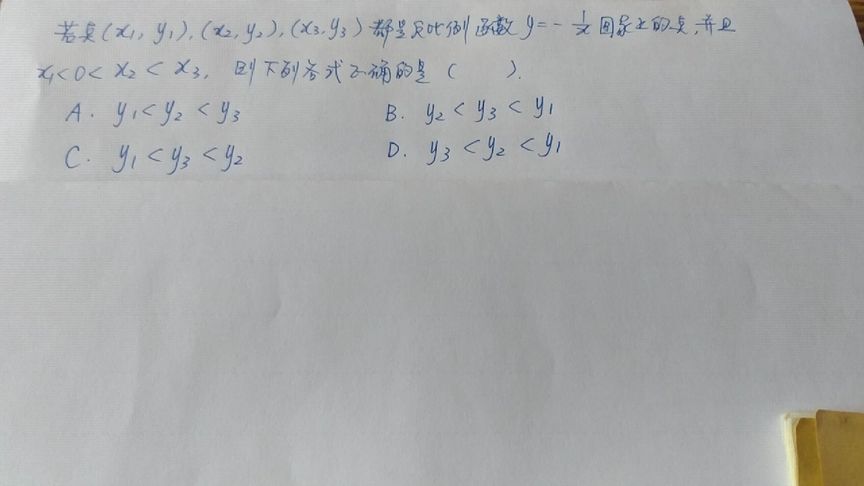 若点(x₁, y₁),(x₂, y₂),(x₃, y₃)都是反比例函数y=-1/x图象上的点,并且
x₁<0<x₂<x₃, 则下列各式正确的是( ).
A. y₁<y₂<y₃ B. y₂<y₃<y₁
C. y₁<y₃<y₂ D. y₃<y₂<y₁